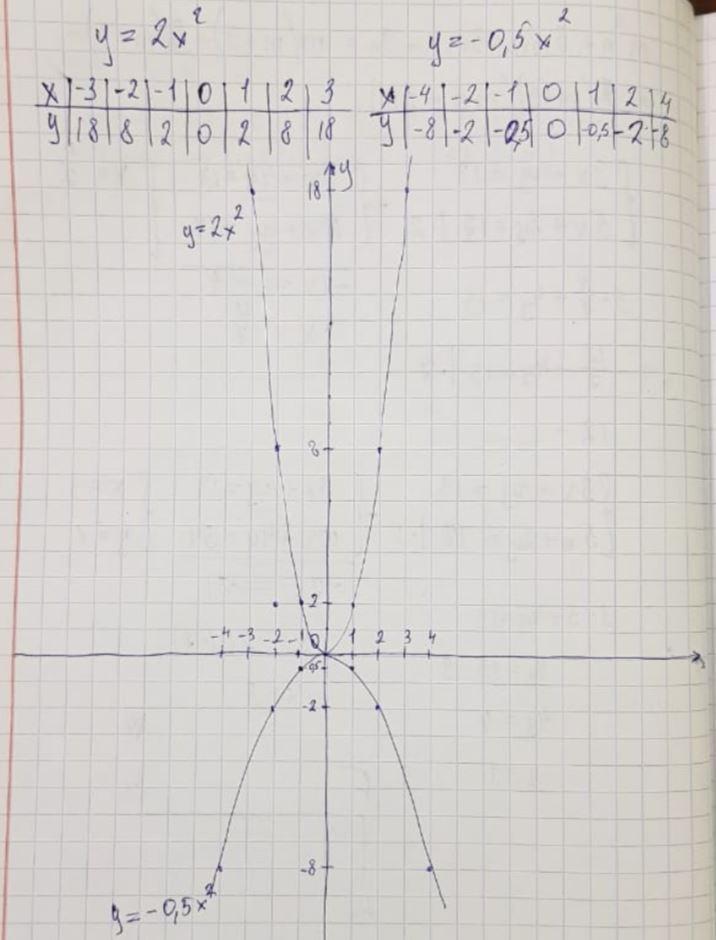 y = 2x²
y = -0,5x²
x | -3 | -2 | -1 | 0 | 1 | 2 | 3
y | 18 | 8 | 2 | 0 | 2 | 8 | 18
x | -4 | -2 | -1 | 0 | 1 | 2 | 4
y | -8 | -2 | -0,5 | 0 | -0,5 | -2 | -8
y
18
y=2x²
8
2
-4 -3 -2 -1 0 1 2 3 4
-2
-8
y=-0,5x²